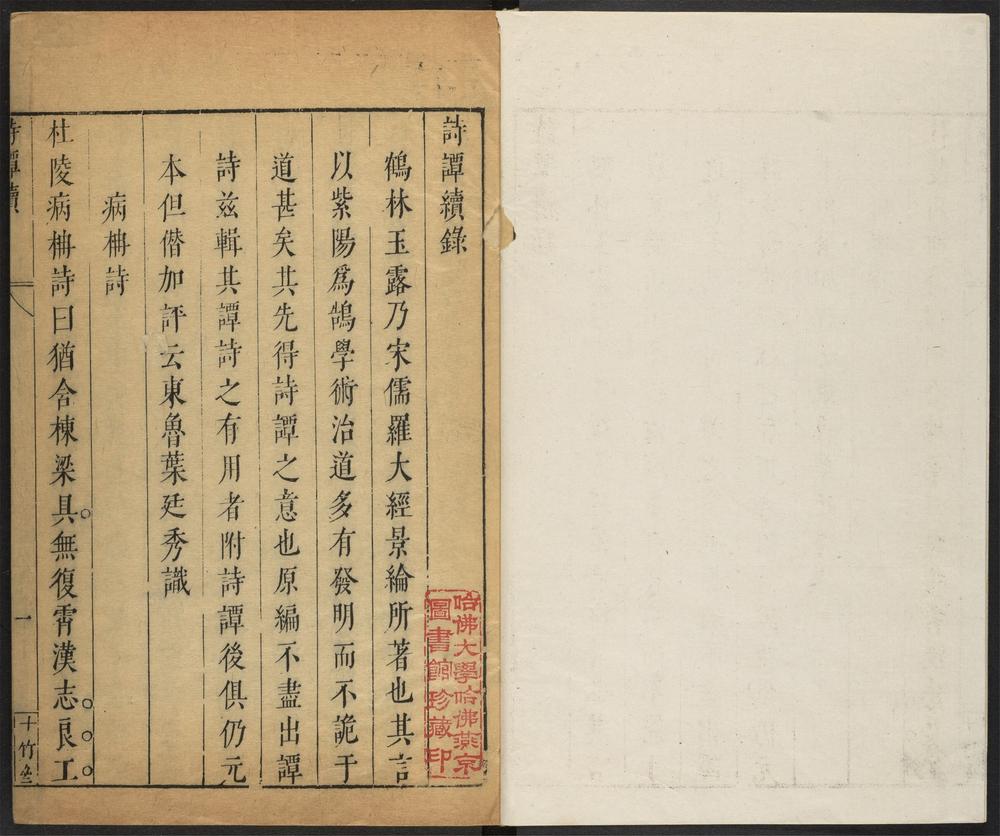 詩譚續錄
鶴林玉露乃宋儒羅大經景綸所著也其言
以紫陽爲鵠學術治道多有發明而不詭于
道甚矣其先得詩譚之意也原編不盡出譚
詩茲輯其譚詩之有用者附詩譚後俱仍元
本但僭加評云東魯葉廷秀識
病柟詩
杜陵病柟詩曰猶含棟梁具無復霄漢志良工
詩譚續
一
十竹齋
哈佛大學哈佛燕京
圖書館珍藏印